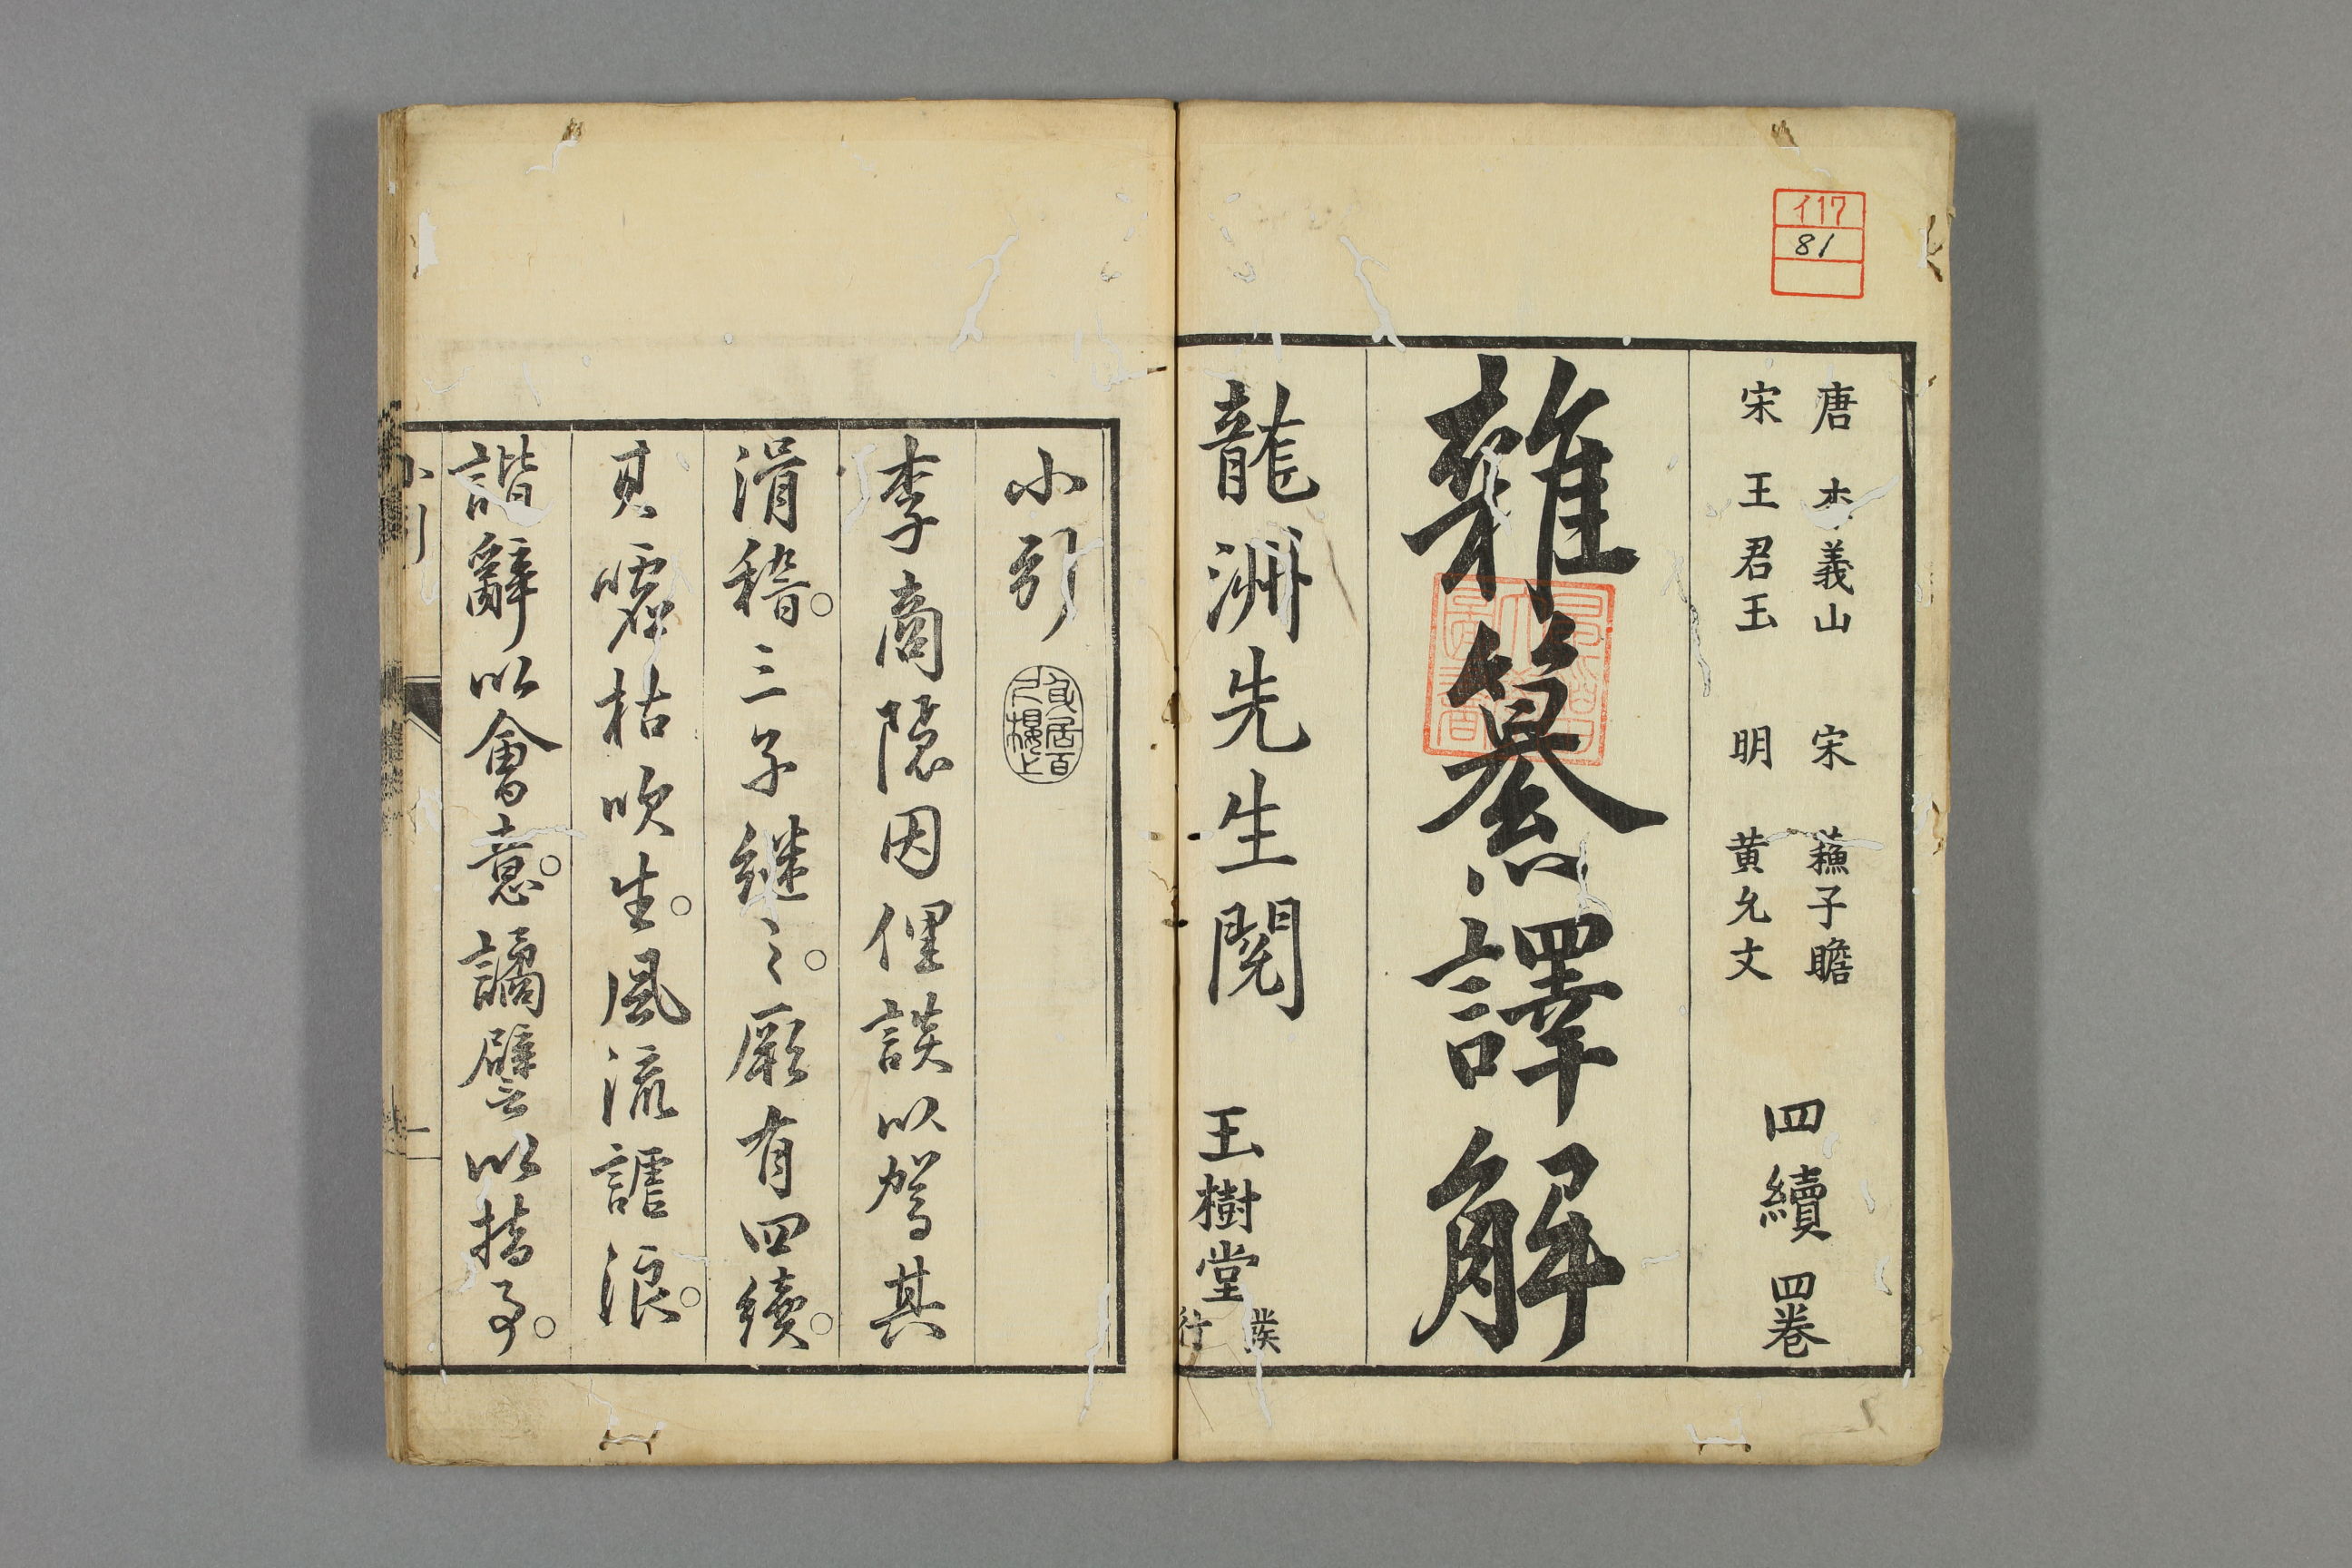 イ17
81
唐 李義山 宋 蘓子瞻
宋 王君玉 明 黄允文
四續 四卷
雜纂譯解
龍洲先生閱
玉樹堂
發
行
小引
李商隱因俚談以駕其
滑稽。三子継之。厥有四續。
其噓枯吹生。風流謔浪。
諧辭以會意。譎譬以指事。
小引
一